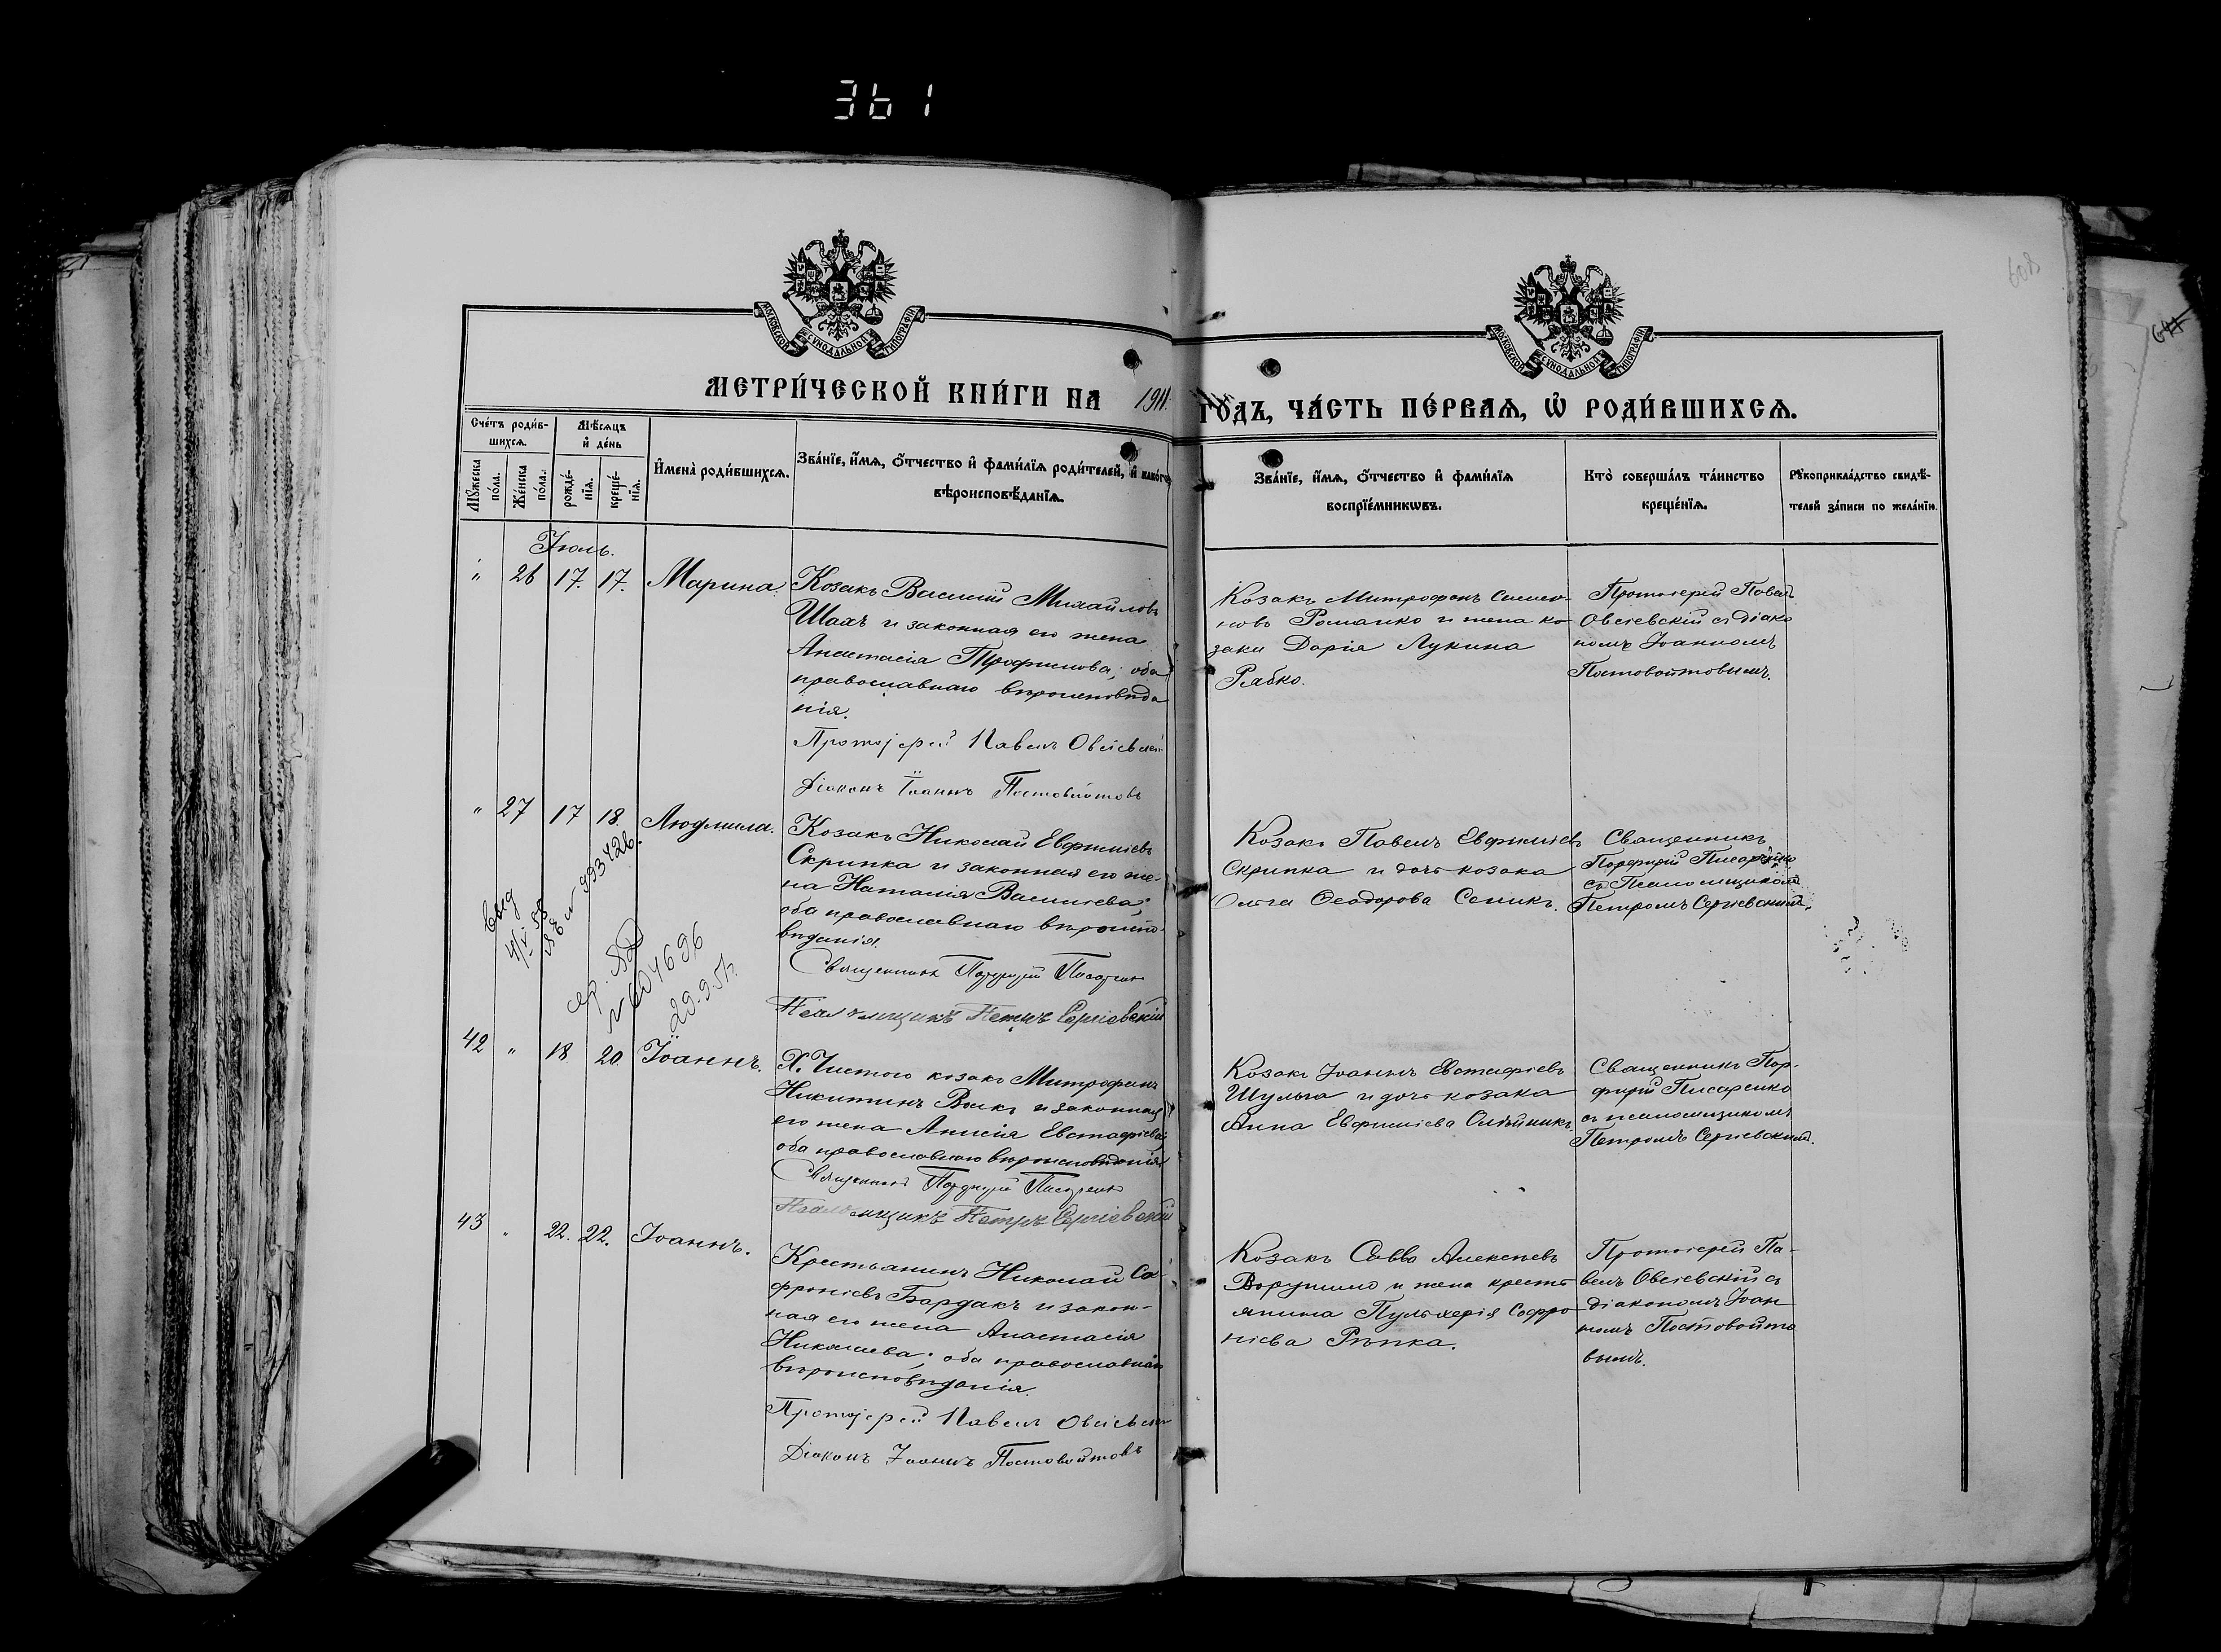 361
608
МОСКОВСКОЙ СѴНОДАЛЬНОЙ ТИПОГРАФІИ
МОСКОВСКОЙ СѴНОДАЛЬНОЙ ТИПОГРАФІИ
МЕТРИ́ЧЕСКОЙ КНИ́ГИ НА 1911 ГОДЪ, ЧА́СТЬ ПЕ́РВАѦ, Ѡ҆ РОДИ́ВШИХСѦ.
Сче́тъ роди́в-
шихсѧ.
Мѣ́сѧцъ
и҆ де́нь
Мꙋ́жеска
по́ла.
Же́нска
по́ла.
рожде́-
нїѧ.
креще́-
нїѧ.
И҆мена̀ роди́вшихсѧ.
Зва́нїе, и҆́мѧ, ѻ҆́тчество и҆ фами́лїѧ роди́телей, и҆ како́гѡ
вѣроисповѣ́данїѧ.
Зва́нїе, и҆́мѧ, ѻ҆́тчество и҆ фами́лїѧ
воспрїе́мникѡвъ.
Кто̀ соверша́лъ та́инство
креще́нїѧ.
Рꙋкоприкла́дство свидѣ́-
телей за́писи по жела́нїю.
Іюль.
" 26 17. 17. Марина.
Козакъ Василій Михайловъ
Шахъ и законная его жена
Анастасія Трофимова; оба
православнаго вѣроисповѣда
нія.
Протоіерей Павелъ Овсіевскій
Діаконъ Іоаннъ Постовойтовъ
Козакъ Митрофанъ Симео-
новъ Романко и жена ко-
зака Дарія Лукина
Рябко.
Протоіерей Павелъ
Овсіевскій съ діако
номъ Іоанномъ
Постовойтовымъ.
" 27 17 18. Людмила.
Козакъ Николай Евфиміевъ
Скрипка и законная его же-
на Наталія Василіева;
оба православнаго вѣроиспо-
вѣданія.
Священникъ Порфирій Писаренко
Псаломщикъ Петръ Сергіевскій
Козакъ Павелъ Евфиміевъ
Скрипка и дочь козака
Ольга Ѳеодорова Сеникъ.
Священникъ
Порфирій Писаренко
съ Псаломщикомъ
Петромъ Сергіевскимъ.
42 " 18. 20. Іоаннъ.
Х. Чистого козакъ Митрофанъ
Никитинъ Волкъ и законная
его жена Анисія Евстафіева;
оба православнаго вѣроисповѣданія
Священникъ Порфирій Писаренко
Псаломщикъ Петръ Сергіевскій
Козакъ Іоаннъ Евстафіевъ
Шульга и дочь козака
Анна Евфиміева Олѣйникъ.
Священникъ Пор-
фирій Писаренко
съ псаломщикомъ
Петромъ Сергіевскимъ.
43 " 22. 22. Іоаннъ.
Крестьянинъ Николай Со-
фроніевъ Бардакъ и закон-
ная его жена Анастасія
Николаева; оба православнаго
вѣроисповѣданія.
Протоіерей Павелъ Овсіевскій
Діаконъ Іоаннъ Постовойтовъ
Козакъ Савва Алексѣевъ
Ворушило и жена кресть
янина Пульхерія Софро
ніева Рѣпка.
Протоіерей Па-
велъ Овсіевскій съ
діакономъ Іоан
номъ Постовойто
вымъ.